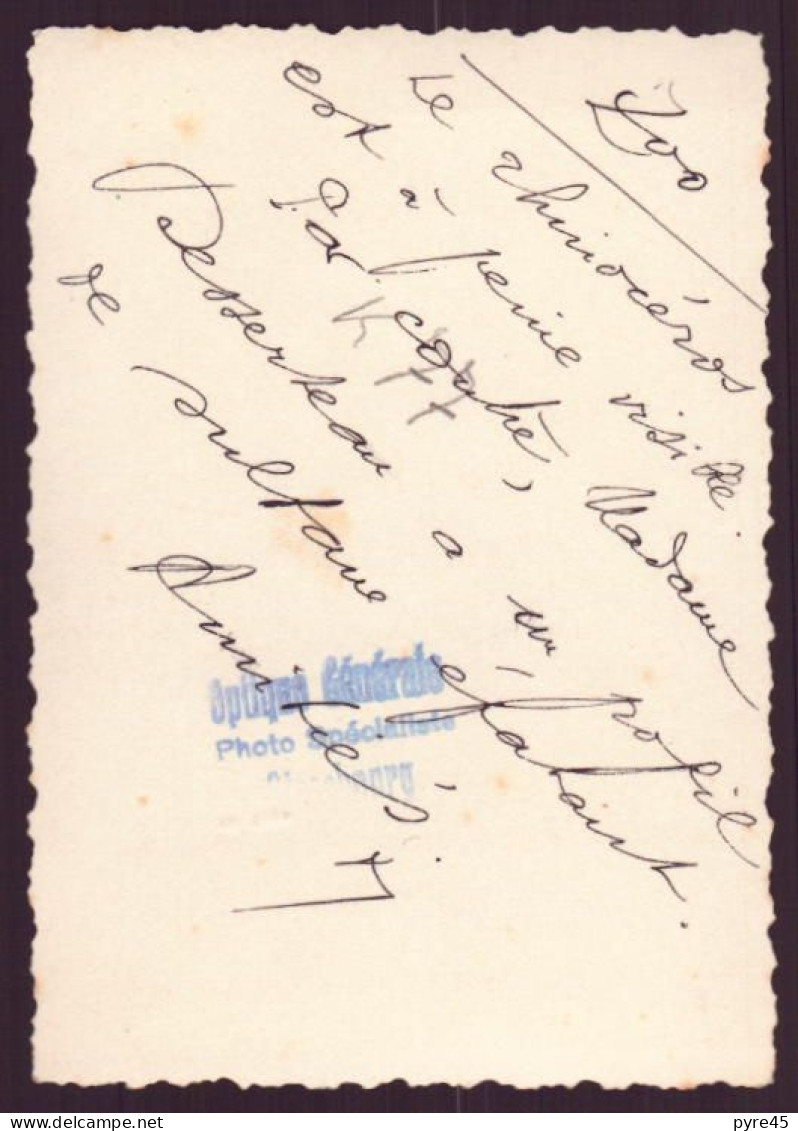 Zoo
Le rhinocéros
est à peine visible.
Par contre, Madame
Besserteau a un profil
de sultane
Amitiés
Optique Générale
Photo Spécialiste
pyre45